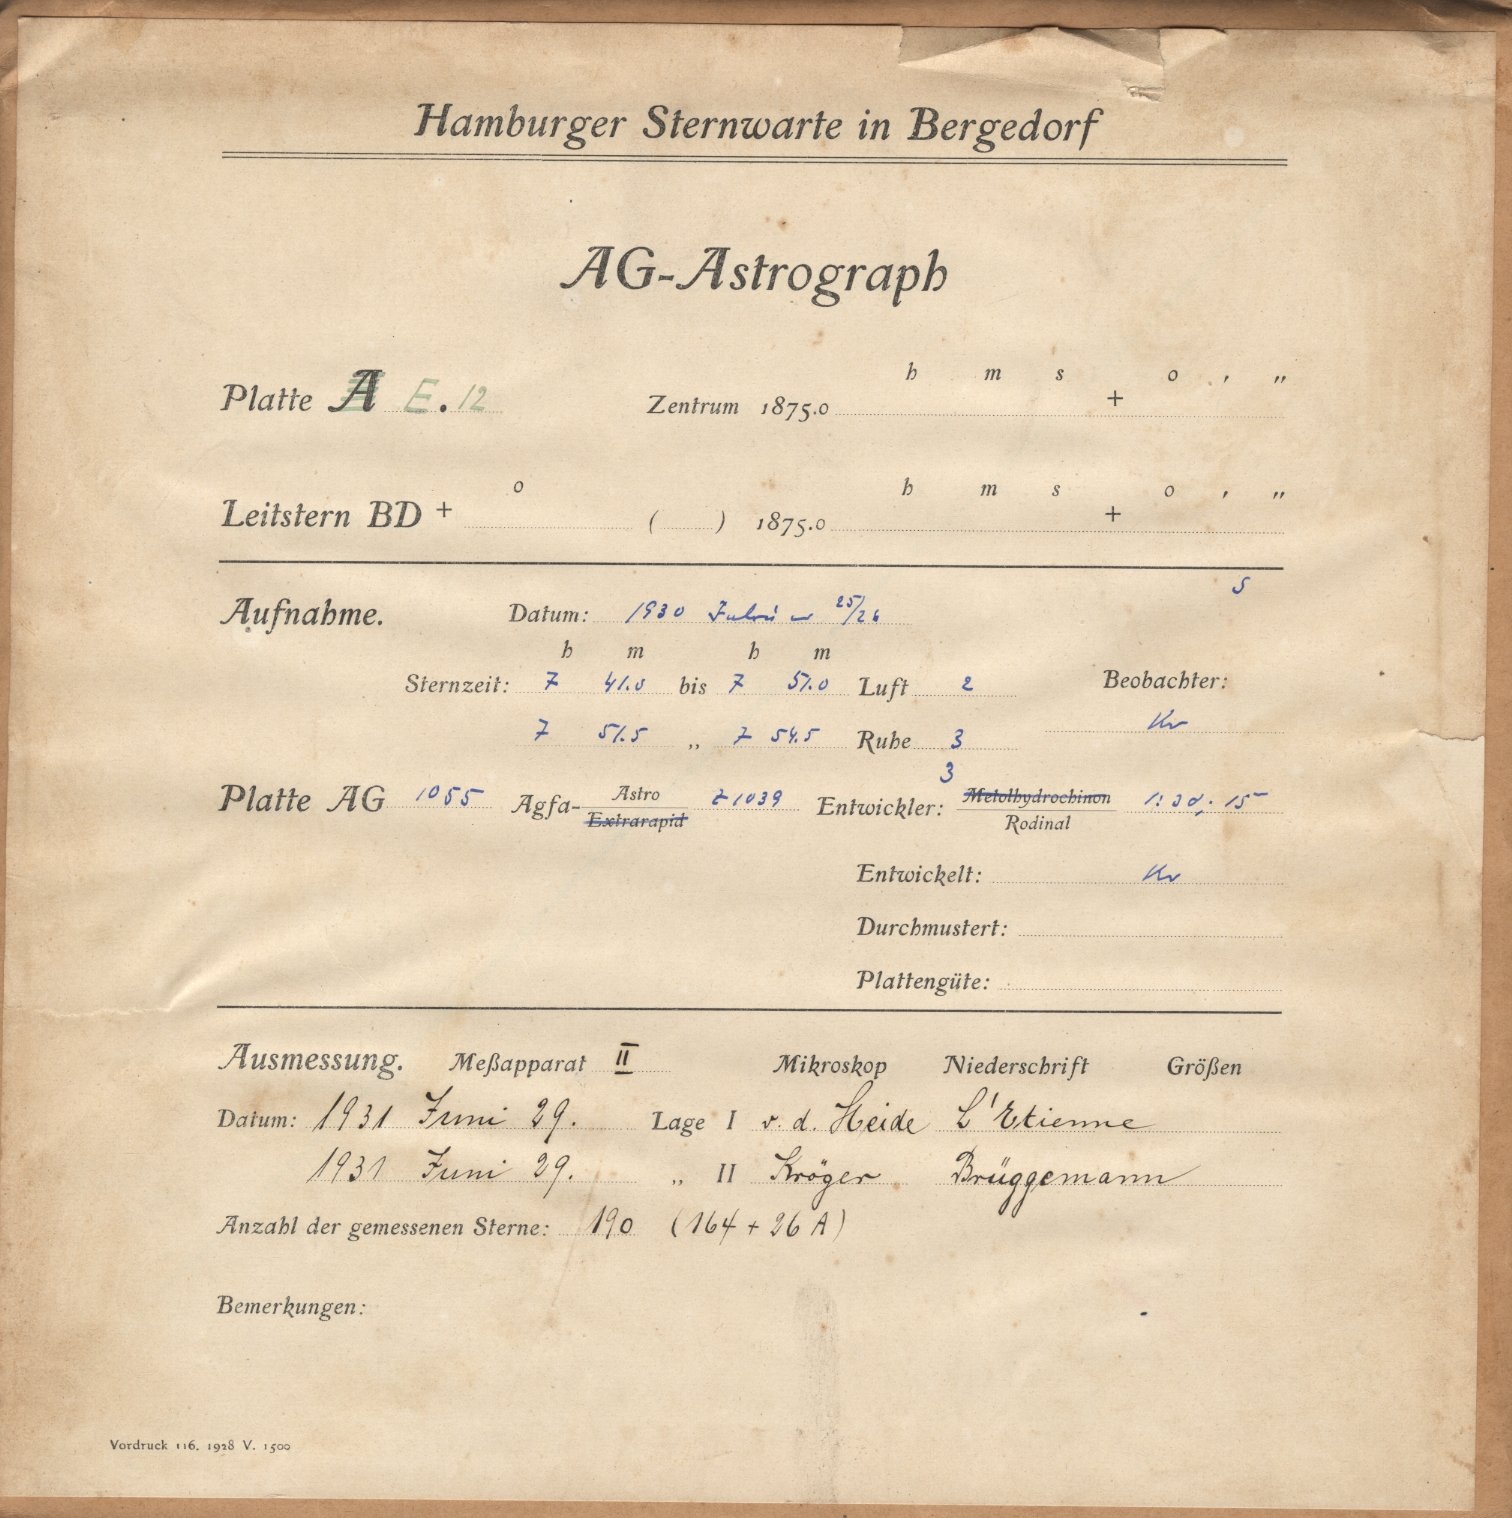 Hamburger Sternwarte in Bergedorf
AG-Astrograph
h m s o , „
Platte A E.12 Zentrum 1875.0 +
o h m s o , „
Leitstern BD + ( ) 1875.0 +
S
Aufnahme. Datum: 1930 25/26
h m h m
Sternzeit: 7 41.0 bis 7 51.0 Luft 2 Beobachter:
7 51.5 „ 7 54.5 Ruhe 3 Kr
3
Platte AG 1055 Agfa- Astro Extrarapid Z1039 Entwickler: Metolhydrochinon Rodinal 1:30; 15
Entwickelt: Kr
Durchmustert:
Plattengüte:
Ausmessung. Meßapparat II Mikroskop Niederschrift Größen
Datum: 1931 Juni 29. Lage I v. d. Heide L'Etienne
1931 Juni 29. „ II Kröger Brüggemann
Anzahl der gemessenen Sterne: 190 (164 + 26 A)
Bemerkungen:
Vordruck 116. 1928 V. 1500